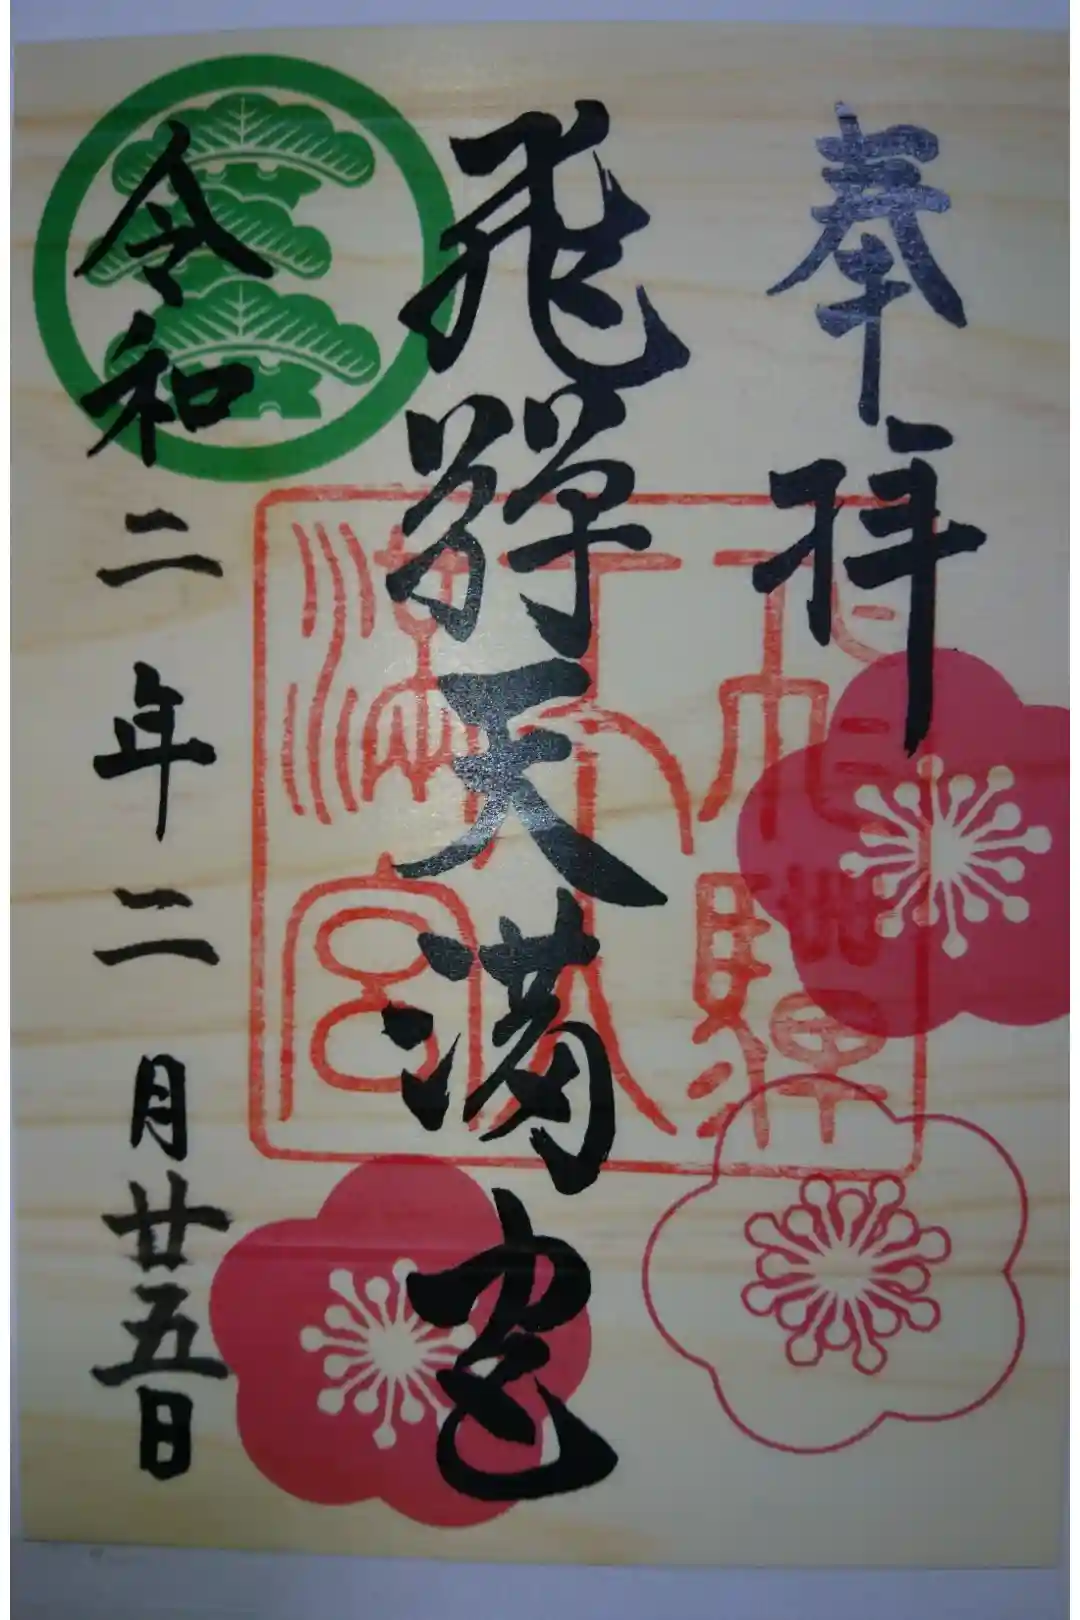 奉拝
飛騨天満宮
令和二年二月廿五日
飛騨
天満宮